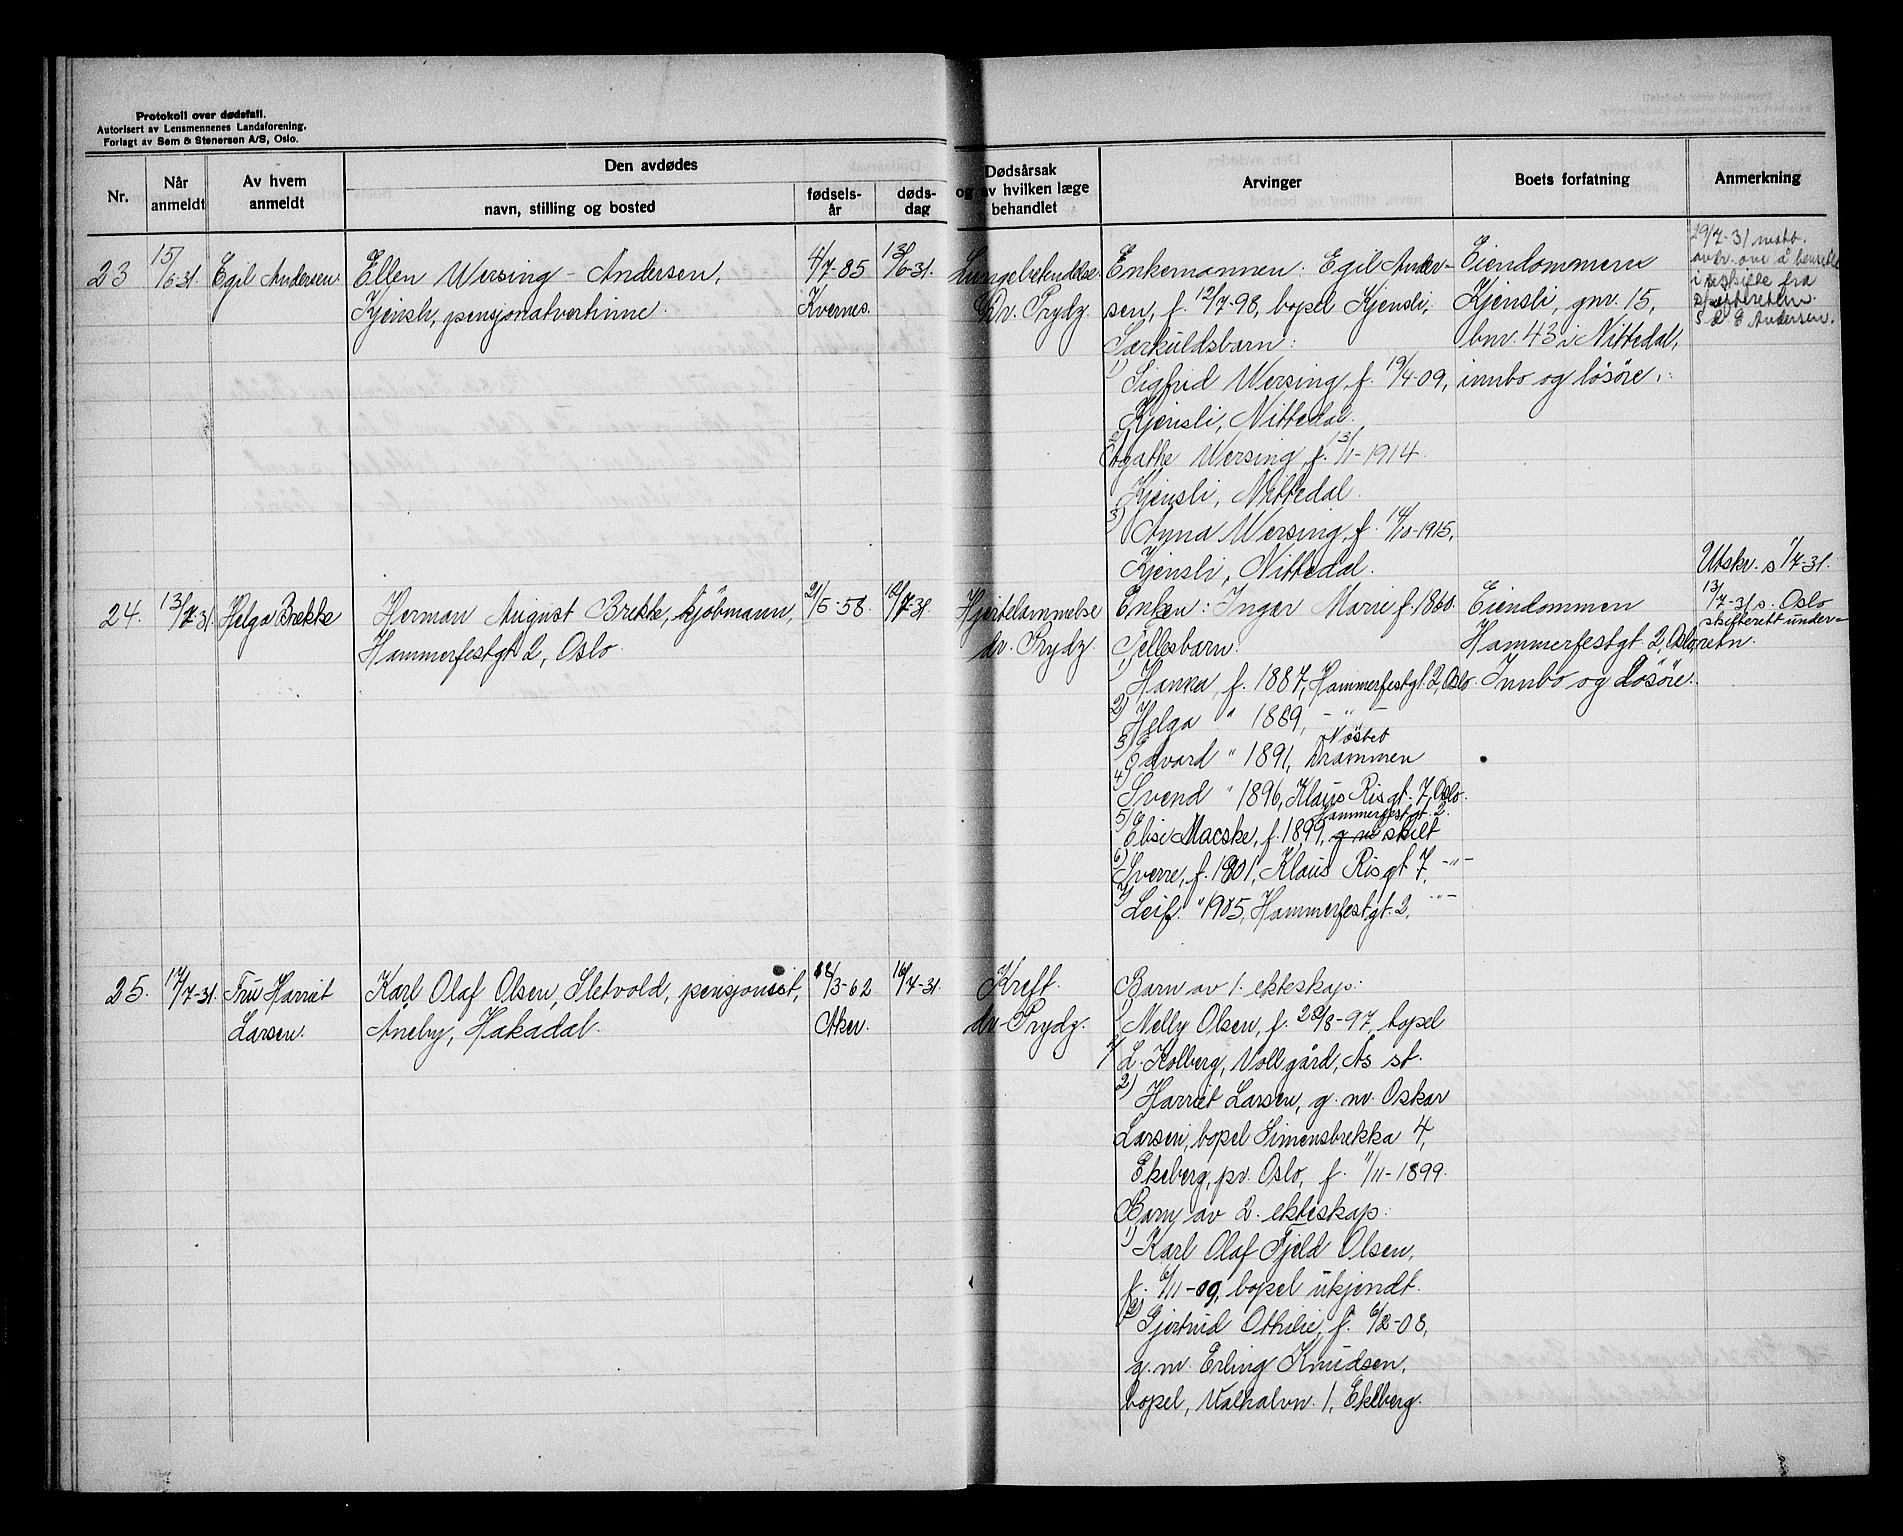 Protokoll over dødsfall.
Autorisert av Lensmennenes Landsforening.
Forlagt av Sem & Stenersen A/S, Oslo.
Nr.
Når anmeldt
Av hvem anmeldt
Den avdødes
navn, stilling og bosted
fødsels-år
døds-dag
Dødsårsak
og av hvilken læge
behandlet
Arvinger
Boets forfatning
Anmerkning
23
15/6-31.
Egil Andersen
Ellen Wersing-Andersen,
Kjensli, pensjonatvertinne.
4/7-85
Kvernes.
13/6-31.
Lungebetendelse.
Dr. Prydz.
Enkemannen: Egil Ander-
sen, f. 12/7-98, bopel Kjensli,
Særkuldsbarn:
1) Sigfrid Wersing, f. 19/4-09,
Kjensli, Nittedal.
2) Agathe Wersing, f. 13/1-1914.
Kjensli, Nittedal.
3) Anna Wersing, f. 14/10-1915,
Kjensli, Nittedal.
Eiendommen
Kjensli, gnr. 15,
bnr. 43 i Nittedal,
innbo og løsøre.
29/7-31
i fra
skifteretten.
E Andersen.
Utskr. s 1/7-31.
24.
13/7-31.
Helga Brekke
Herman August Brekke, kjøbmann,
Hammerfestgt 2, Oslo.
21/5-58.
12/7-31
Hjertelammelse
dr. Prydz.
Enken: Inger Marie f. 1860.
Fellesbarn:
1) Hanna, f. 1887, Hammerfestgt 2, Oslo.
2) Helga " 1889, - " -
3) Edvard " 1891, Drammen
4) Svend " 1896, Klaus Risgt. 7, Oslo.
Hammerfestgt. 2.
5) Elise Macske, f. 1899, g m skilt
6) Sverre, f. 1901, Klaus Risgt 7, -"-
7) Leif. " 1905, Hammerfestgt. 2, -"-
Eiendommen
Hammerfestgt 2, Oslo,
Innbo og løsøre.
13/7-31 s. Oslo
skifterett under-
retn.
25.
17/7-31.
Fru Harriet
Larsen.
Karl Olaf Olsen, Sletvold, pensjonist,
Åneby, Hakadal.
18/3-62
Aker.
16/7-31.
Kreft.
dr. Prydz.
Barn av 1. ekteskap:
1) Nelly Olsen, f. 28/8-97, bopel
L. Kolberg, Vollgård, Ås st.
2) Harriet Larsen, g. m. Oskar
Larsen, bopel Simensbrekka 4,
Ekeberg, pr. Oslo, f. 11/11-1899.
Barn av 2. ekteskap:
1) Karl Olaf Fjeld Olsen,
f. 6/11-09, bopel ukjendt.
2) Gjertrud Othilie, f. 6/2-08,
g. m. Erling Knudsen,
bopel, Valhalvn. 1, Ekeberg.